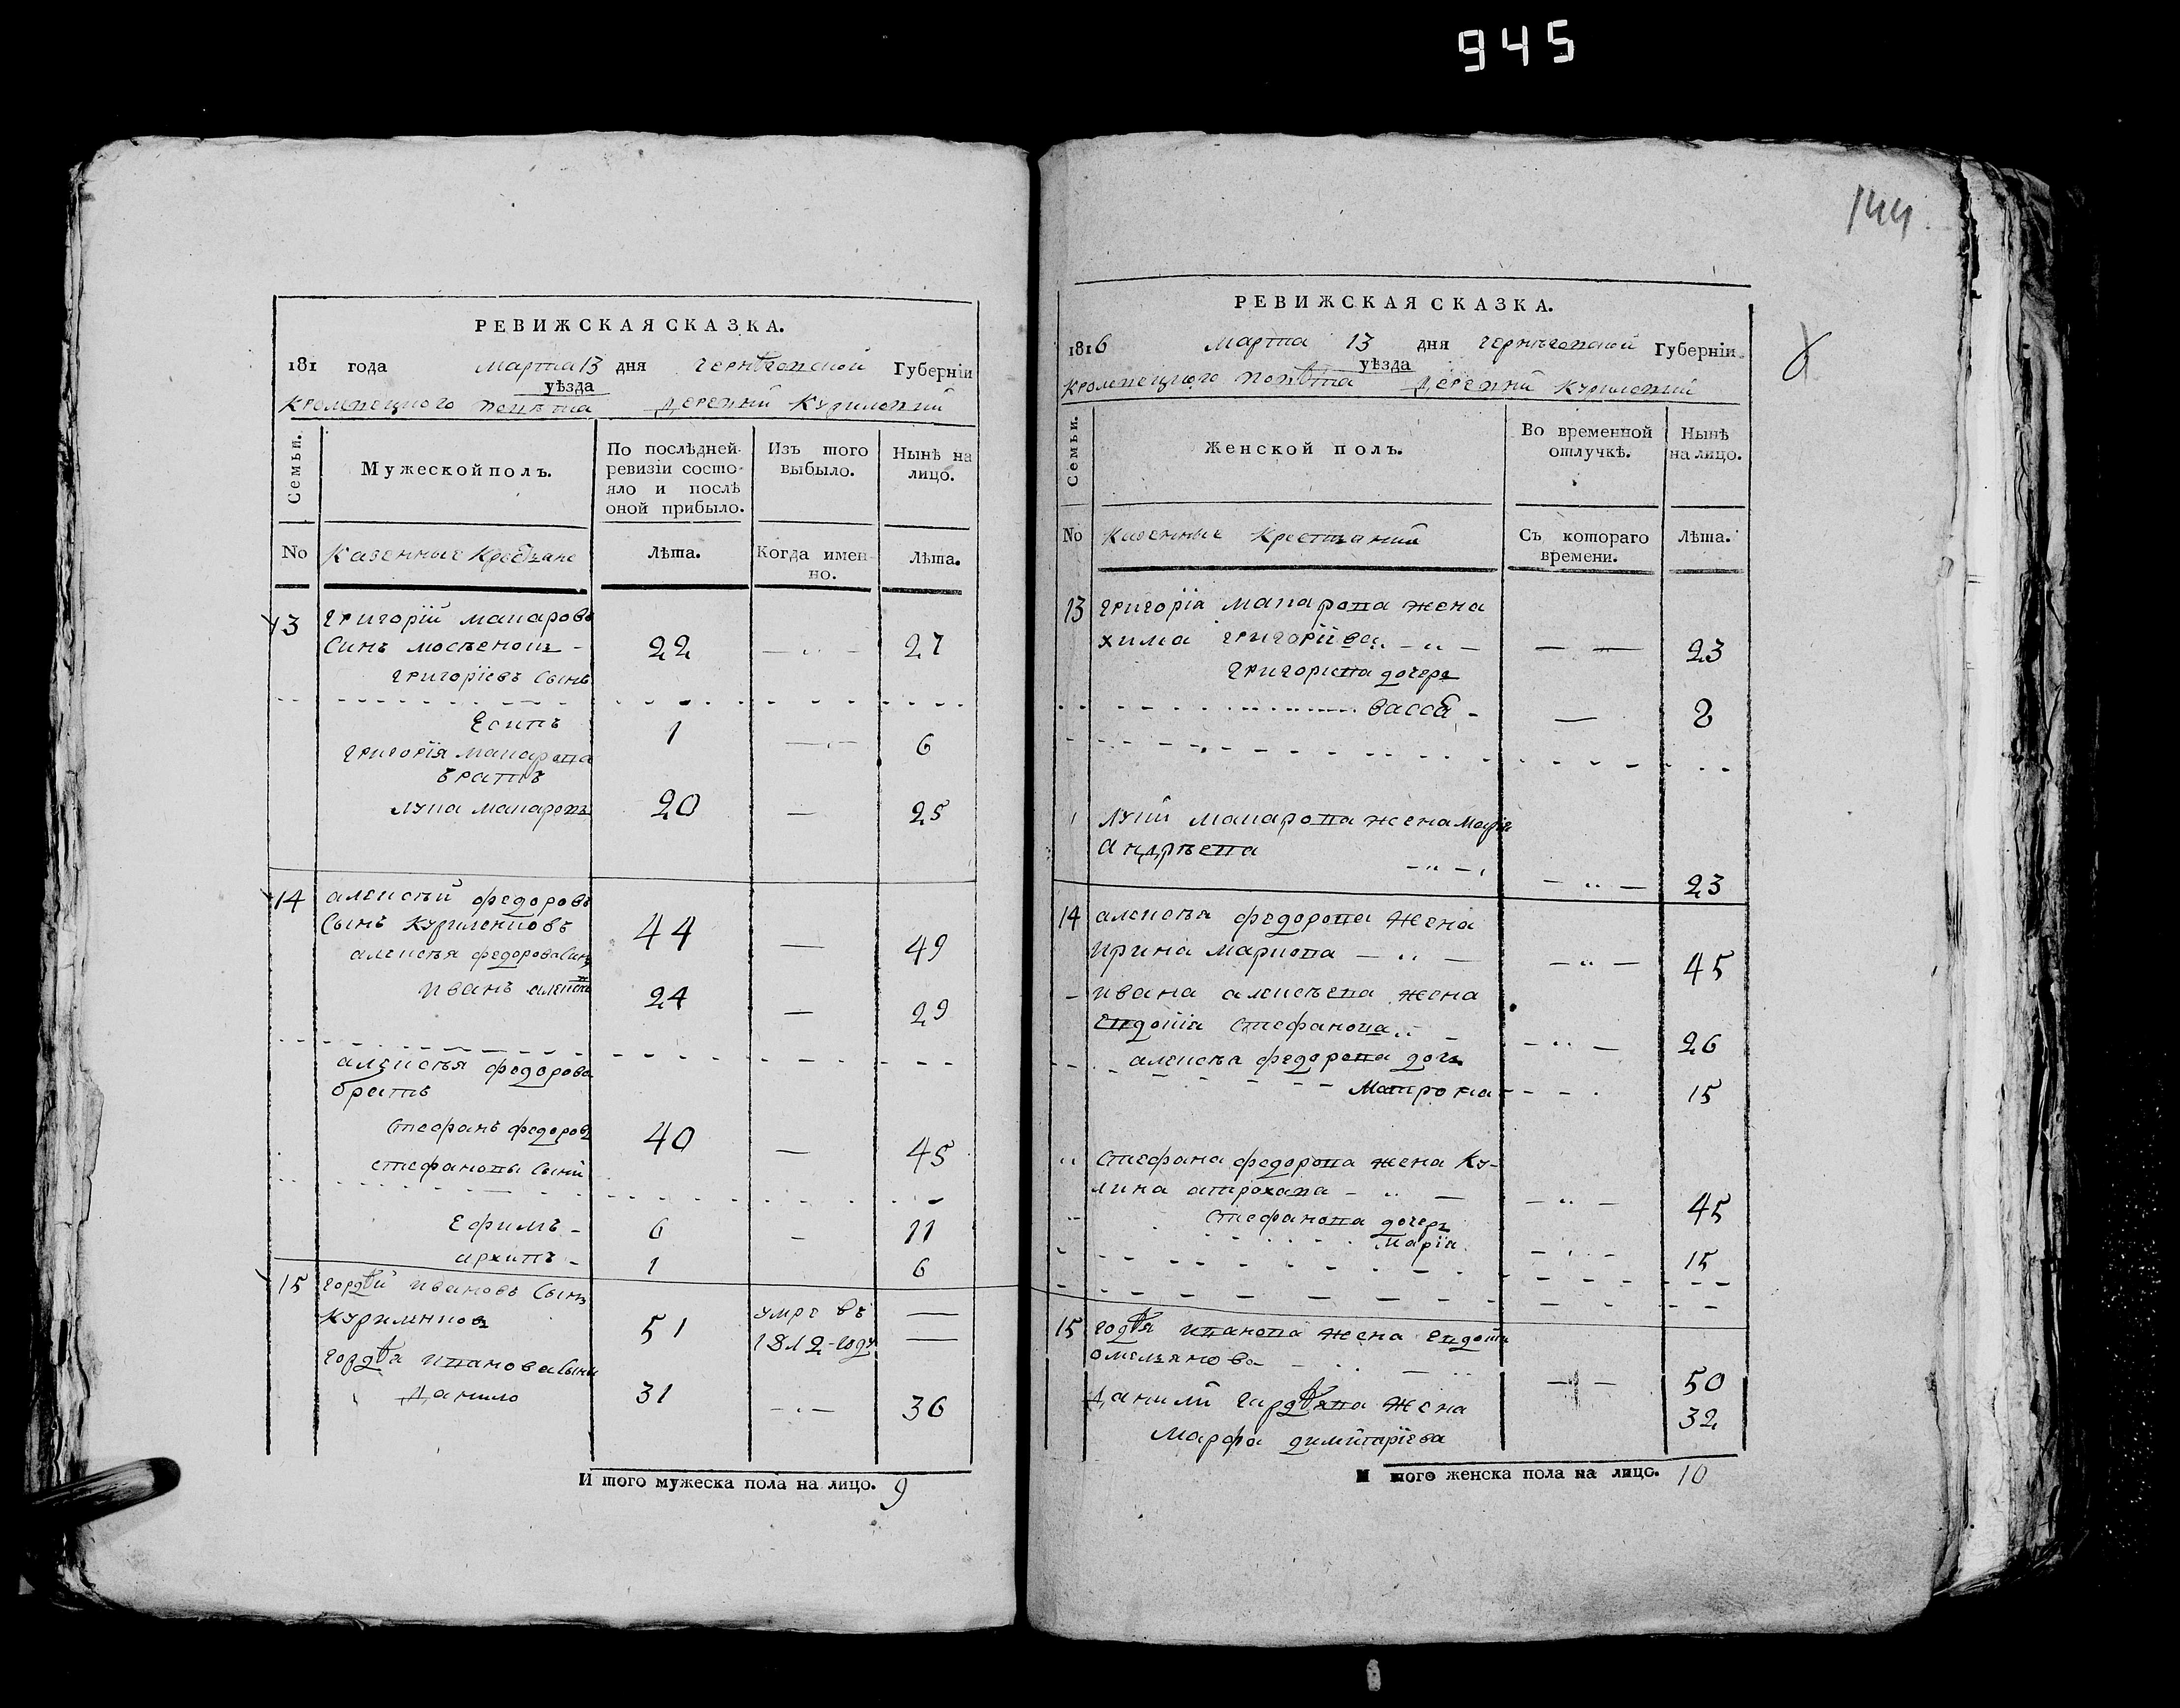 945
144
РЕВИЖСКАЯ СКАЗКА.
181 года Марта 13 дня Чернѣговской Губерніи
уѣзда
Кролевецкого повѣта Деревни Куриловки
Семьи.
Мужеской полъ.
По послѣдней ревизіи состо-
яло и послѣ
оной прибыло.
Изъ того
выбыло.
Нынѣ на
лицо.
No
Казенные Крестьяне
Лѣта.
Когда имен-
но.
Лѣта.
13 Григорій Макаровъ
Синъ 22 27
Григоріевъ Сынъ
Есипъ 1 6
Григорія Макарова
братъ
Лука Макаровъ 20 25
14 Алексѣй Федоровъ
Сынъ Куриленковъ 44 49
Алексѣя Федорова Синъ
Иванъ 24 29
Алексѣя Федорова
братъ
Стефанъ Федоровъ 40 45
Стефановы Сыни
Ефимъ 6 11
Архипъ 1 6
15 Гордѣй Ивановъ Сынъ
Куриленковъ 51 умре въ
1812 году
Гордѣя Иванова Сынъ
Данило 31 36
И того мужеска пола на лицо. 9
РЕВИЖСКАЯ СКАЗКА.
1816 Марта 13 дня Чернѣговской Губерніи
уѣзда
Кролевецкого Повѣта Деревни Куриловки
Семьи.
Женской полъ.
Во временной
отлучкѣ.
Нынѣ
на лицо.
No
Казенные Крестьянки
Съ котораго
времени.
Лѣта.
13 Григорія Макарова жена
Хима Григоріева 23
Григориева дочеръ
Васса 8
Луки Макарова жена Марія
Андрѣева 23
14 Алексѣя Федорова жена
Ирина Маркова 45
Ивана Алексѣева жена
Евдокія Стефанова 26
Алексѣя Федорова дочь
Матрона 15
Стефана Федорова жена Ку-
лина 45
Стефанова дочеръ
Марія 15
15 Годѣя Иванова жена Евдокія
Омельянова 50
Данилы Гардѣява жена 32
Марфа Димитріева
И того женска пола на лицо. 10